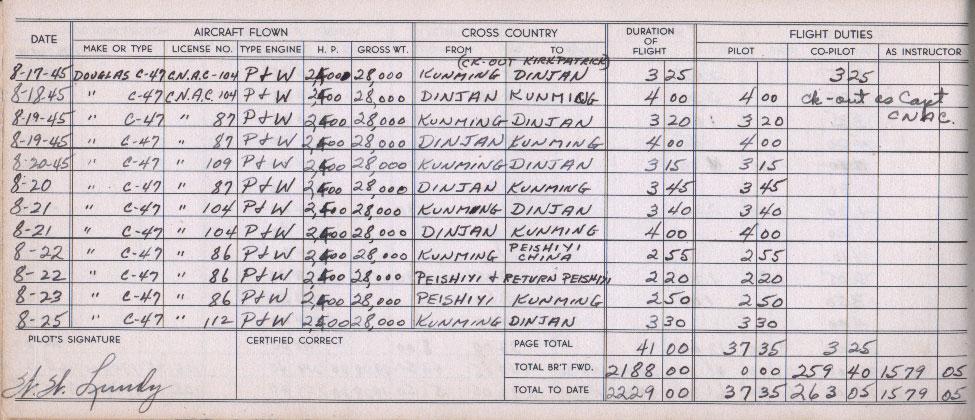 DATE AIRCRAFT FLOWN CROSS COUNTRY DURATION OF FLIGHT FLIGHT DUTIES
MAKE OR TYPE LICENSE NO. TYPE ENGINE H. P. GROSS WT. FROM TO PILOT CO-PILOT AS INSTRUCTOR
(CK-OUT KIRKPATRICK)
8-17-45 DOUGLAS C-47 C.N.A.C-104 P+W 2,400 28,000 KUNMING DINJAN 3 25 3 25
8-18-45 " C-47 C.N.A.C. 104 P+W 2,400 28,000 DINJAN KUNMING 4 00 4 00 ck-out as Capt
8-19-45 " C-47 " 87 P+W 2,400 28,000 KUNMING DINJAN 3 20 3 20 CNAC.
8-19-45 " C-47 " 87 P+W 2,400 28,000 DINJAN KUNMING 4 00 4 00
8-20-45 " C-47 " 109 P+W 2,400 28,000 KUNMING DINJAN 3 15 3 15
8-20 " C-47 " 87 P+W 2,400 28,000 DINJAN KUNMING 3 45 3 45
8-21 " C-47 " 104 P+W 2,400 28,000 KUNMING DINJAN 3 40 3 40
8-21 " C-47 " 104 P+W 2,400 28,000 DINJAN KUNMING 4 00 4 00
8-22 " C-47 " 86 P+W 2,400 28,000 KUNMING PEISHIYI CHINA 2 55 2 55
8-22 " C-47 " 86 P+W 2,400 28,000 PEISHIYI + RETURN PEISHIYI 2 20 2 20
8-23 " C-47 " 86 P+W 2,400 28,000 PEISHIYI KUNMING 2 50 2 50
8-25 " C-47 " 112 P+W 2,400 28,000 KUNMING DINJAN 3 30 3 30
PILOT'S SIGNATURE CERTIFIED CORRECT PAGE TOTAL 41 00 37 35 3 25
TOTAL BR'T FWD. 2188 00 0 00 259 40 1579 05
Lundy TOTAL TO DATE 2229 00 37 35 263 05 1579 05